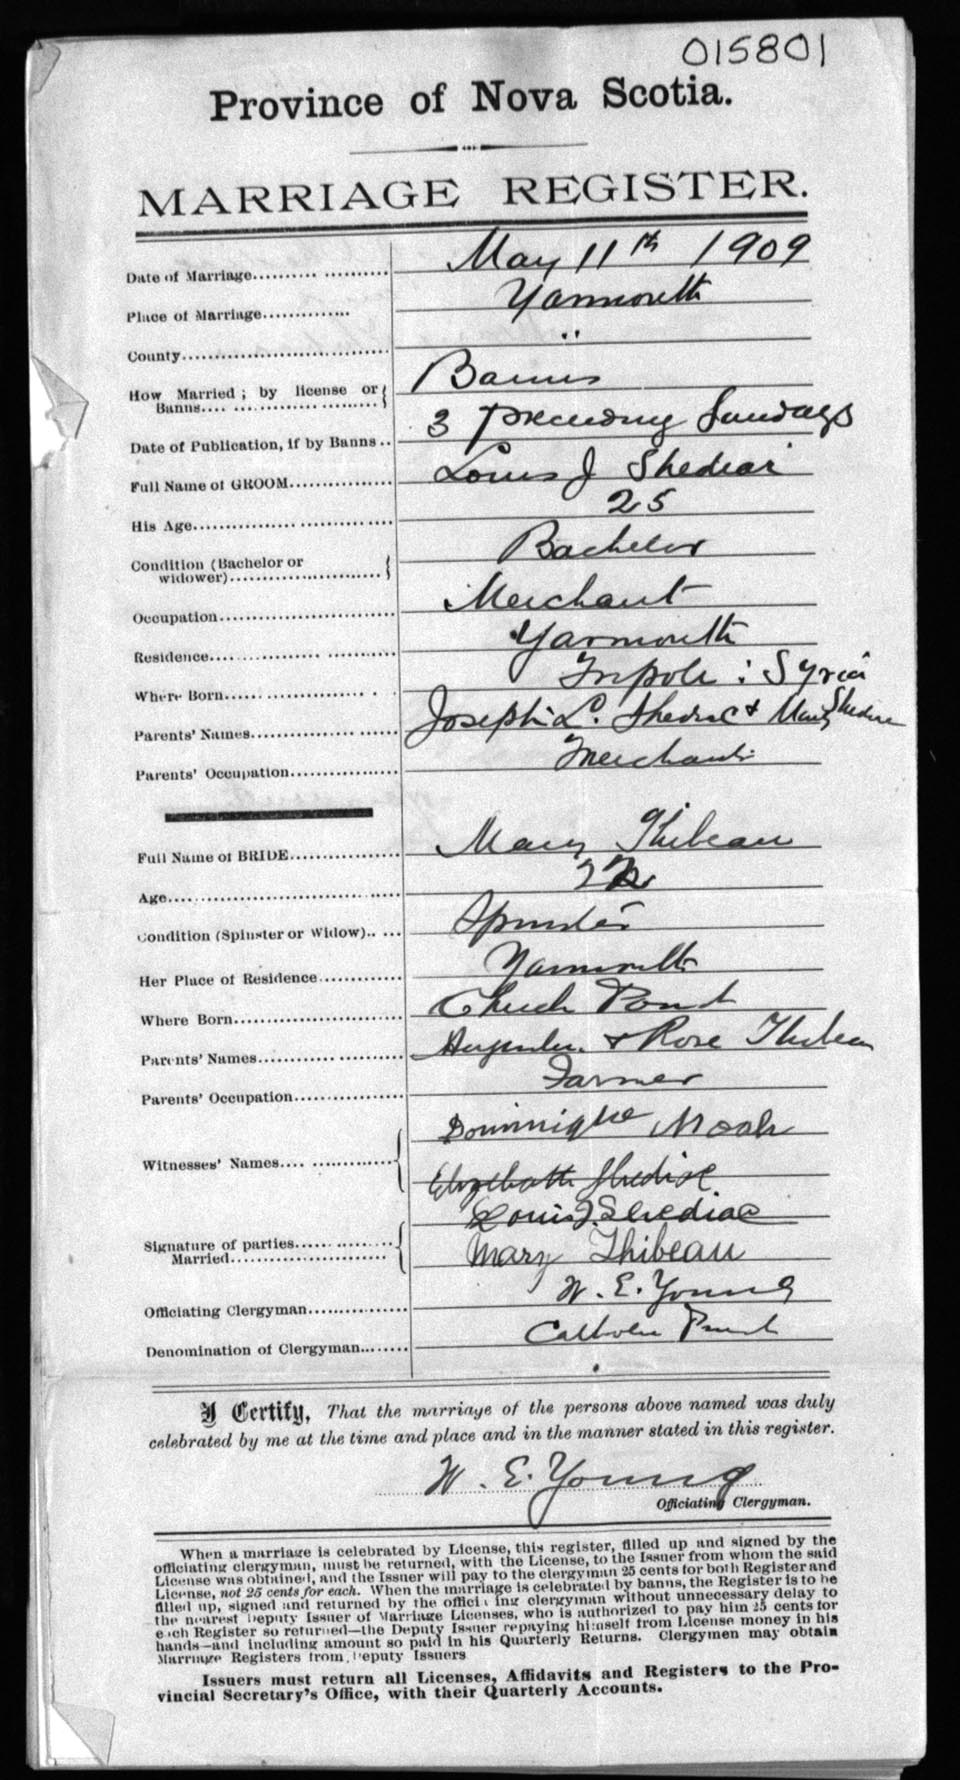 015801
Province of Nova Scotia.
MARRIAGE REGISTER.
Date of Marriage.......... .......... May 11th 1909
Place of Marriage............. Yarmouth
County............................... "
How Married ; by license or Banns
Banns.... .... .......................
Date of Publication, if by Banns .. 3 preceding Sundays
Full Name of GROOM............... Louis J Shediac
His Age............... ............. 25
Condition (Bachelor or Bachelor
widower)......................
Occupation......................... Merchant
Residence.............. .......... Yarmouth
Where Born..... ............. . . Tripoli : Syria
Parents' Names............... ...... Joseph L. Shediac & Mary Shediac
Parents' Occupation................ Merchant
Full Name of BRIDE................ Mary Thibeau
Age.................................. 22
Condition (Spinster or Widow).. ... Spinster
Her Place of Residence............ Yarmouth
Where Born......................... Pond
Parents' Names........... .......... & Rose Thibeau
Parents' Occupation................ Farmer
Dominique
Witnesses' Names.... .............
Elizebath Shediac
Louis J. Shediac
Signature of parties..... ..........
Married...................... Mary Thibeau
Officiating Clergyman.............. W. E. Young
Denomination of Clergyman........ Catholic Priest
I Certify, That the marriage of the persons above named was duly
celebrated by me at the time and place and in the manner stated in this register.
W. E. Young
Officiating Clergyman.
When a marriage is celebrated by License, this register, filled up and signed by the
officiating clergyman, must be returned, with the License, to the Issuer from whom the said
License was obtained, and the Issuer will pay to the clergyman 25 cents for both Register and
License, not 25 cents for each. When the marriage is celebrated by banns, the Register is to be
filled up, signed and returned by the officiating clergyman without unnecessary delay to
the nearest Deputy Issuer of Marriage Licenses, who is authorized to pay him 25 cents for
each Register so returned—the Deputy Issuer repaying himself from License money in his
hands—and including amount so paid in his Quarterly Returns. Clergymen may obtain
Marriage Registers from Deputy Issuers
Issuers must return all Licenses, Affidavits and Registers to the Pro-
vincial Secretary's Office, with their Quarterly Accounts.